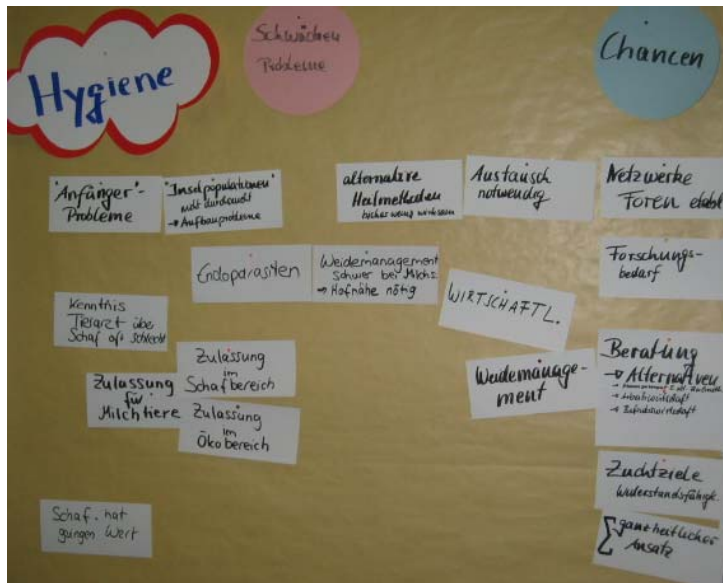 Hygiene
Schwächen
Probleme
Chancen
"Anfänger"-
Probleme
"Inselpopulationen"
nicht durchseucht
→ Aufbauprobleme
alternative
Heilmethoden
bisher wenig wirksam
Austausch
notwendig
Netzwerke
Foren etabl
Endoparasiten
Weidemanagement
schwer bei Milchs.
→ Hofnähe nötig
WIRTSCHAFTL.
Forschungs-
bedarf
Kenntnis
Tierarzt über
Schaf oft schlecht
Zulassung
für
Milchtiere
Zulassung
im
Schafbereich
Zulassung
im
Ökobereich
Weidemanage-
ment
Beratung
→ Alternativen
→
→
→
Zuchtziele
Widerstandsfähigk.
Schaf hat
geringen Wert
∑ ganzheitlicher
Ansatz